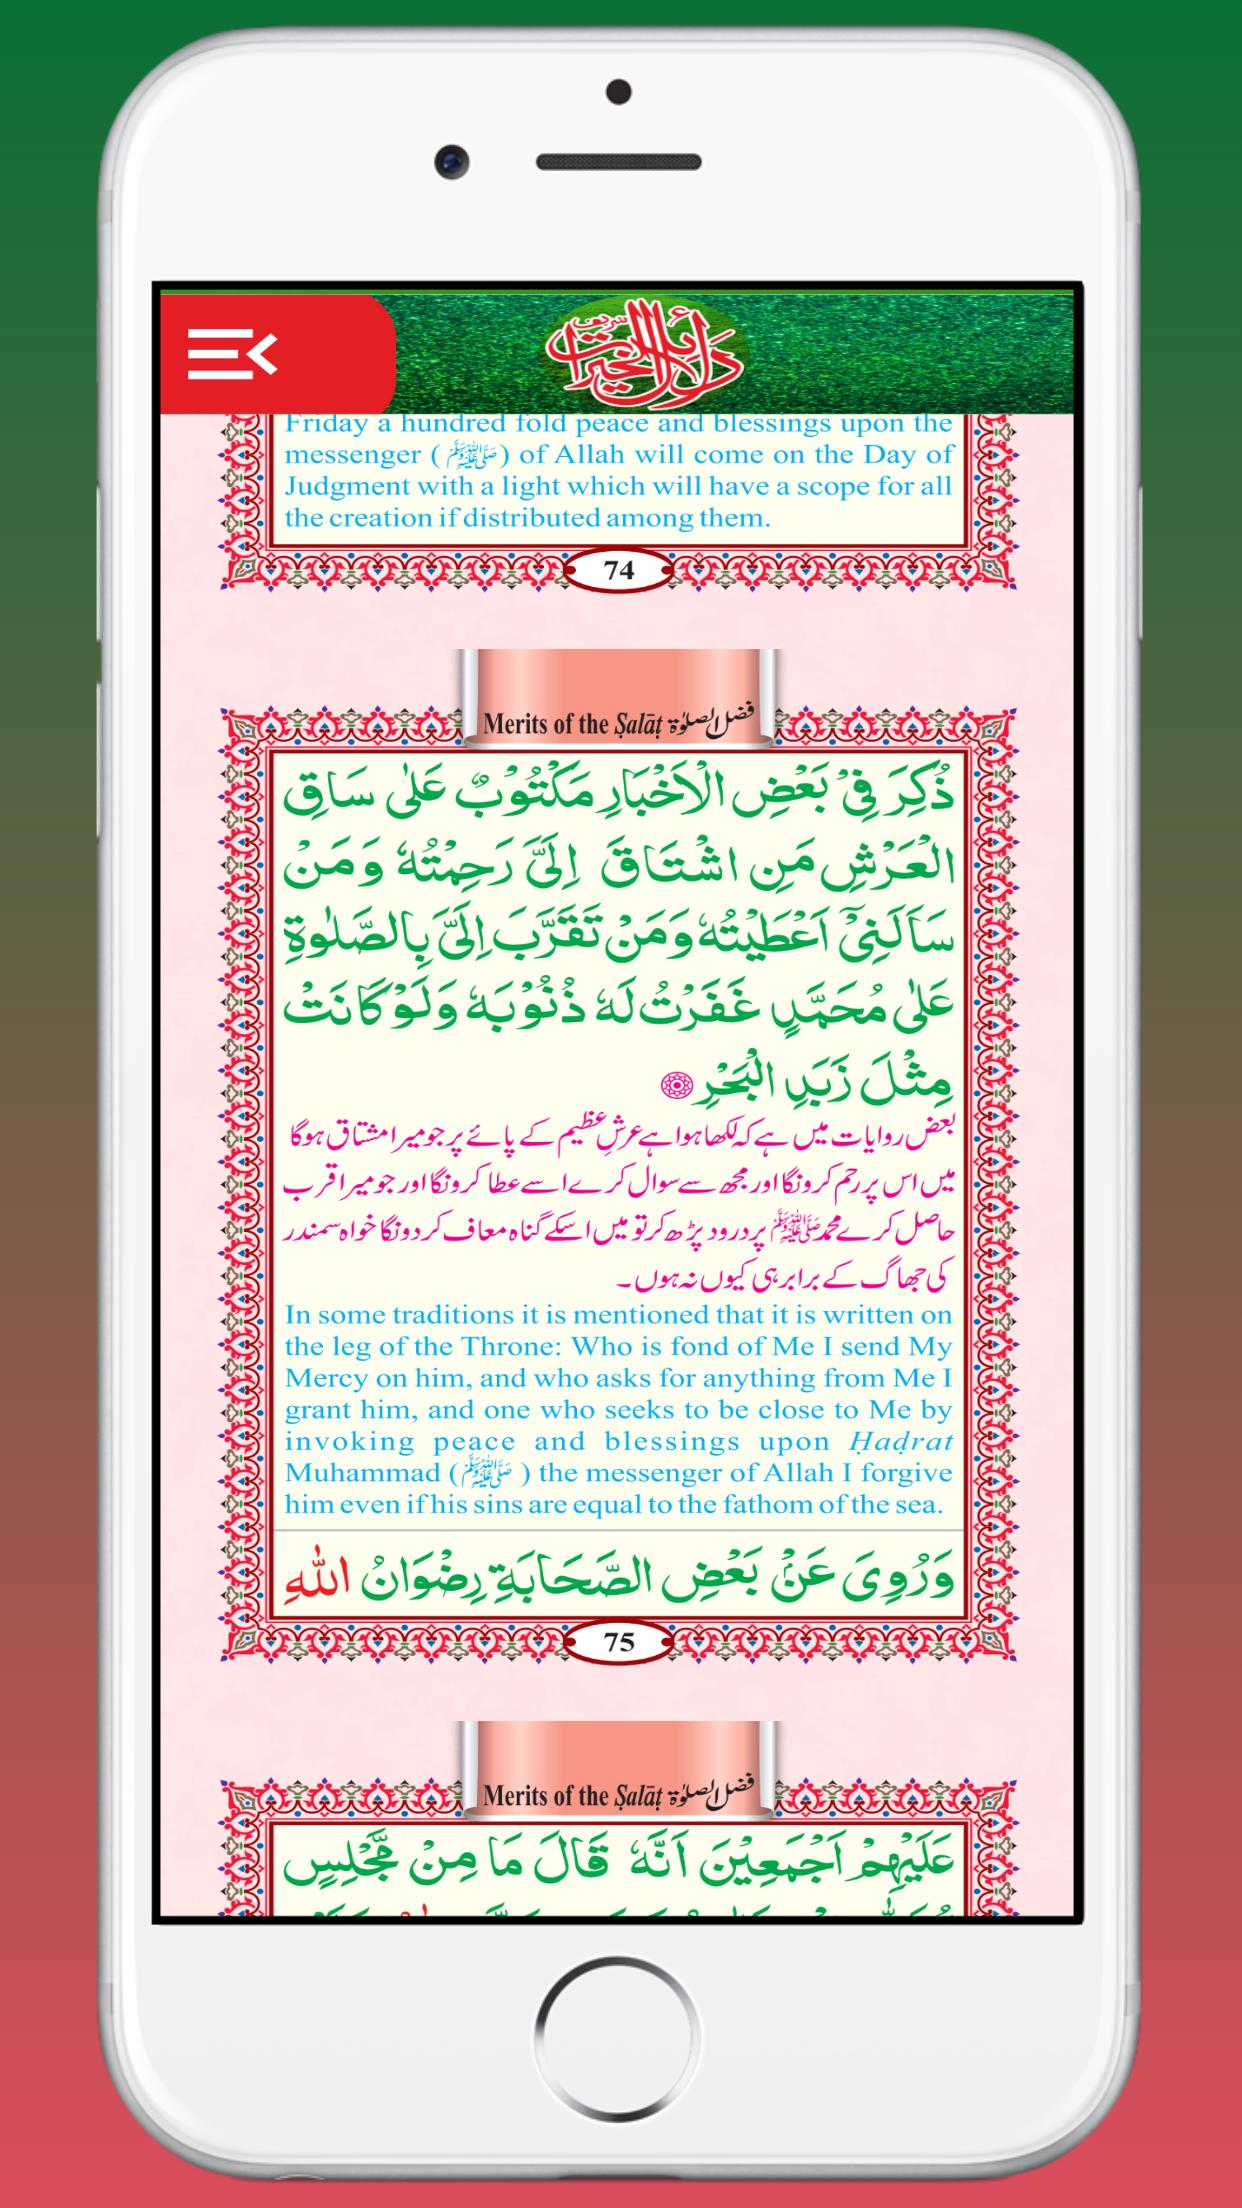 دلائل الخیرات شریف
Friday a hundred fold peace and blessings upon the
messenger (ﷺ) of Allah will come on the Day of
Judgment with a light which will have a scope for all
the creation if distributed among them.
74
Merits of the Ṣalāṭ فضل الصلوٰۃ
ذُكِرَ فِيْ بَعْضِ الْاَخْبَارِ مَكْتُوْبٌ عَلٰى سَاقِ
الْعَرْشِ مَنِ اشْتَاقَ اِلَيَّ رَحِمْتُهٗ وَمَنْ
سَاَلَنِيْٓ اَعْطَيْتُهٗ وَمَنْ تَقَرَّبَ اِلَيَّ بِالصَّلٰوةِ
عَلٰى مُحَمَّدٍ غَفَرْتُ لَهٗ ذُنُوْبَهٗ وَلَوْ كَانَتْ
مِثْلَ زَبَدِ الْبَحْرِ
بعض روایات میں ہے کہ لکھا ہوا ہے عرشِ عظیم کے پائے پر جو میرا مشتاق ہوگا
میں اس پر رحم کرونگا اور مجھ سے سوال کرے اسے عطا کرونگا اور جو میرا قرب
حاصل کرے محمد ﷺ پر درود پڑھ کر تو میں اسکے گناہ معاف کردونگا خواہ سمندر
کی جھاگ کے برابر ہی کیوں نہ ہوں۔
In some traditions it is mentioned that it is written on
the leg of the Throne: Who is fond of Me I send My
Mercy on him, and who asks for anything from Me I
grant him, and one who seeks to be close to Me by
invoking peace and blessings upon Ḥaḍrat
Muhammad (ﷺ) the messenger of Allah I forgive
him even if his sins are equal to the fathom of the sea.
وَرُوِيَ عَنْ بَعْضِ الصَّحَابَةِ رِضْوَانُ اللّٰهِ
75
Merits of the Ṣalāṭ فضل الصلوٰۃ
عَلَيْهِمْ اَجْمَعِيْنَ اَنَّهٗ قَالَ مَا مِنْ مَّجْلِسٍ